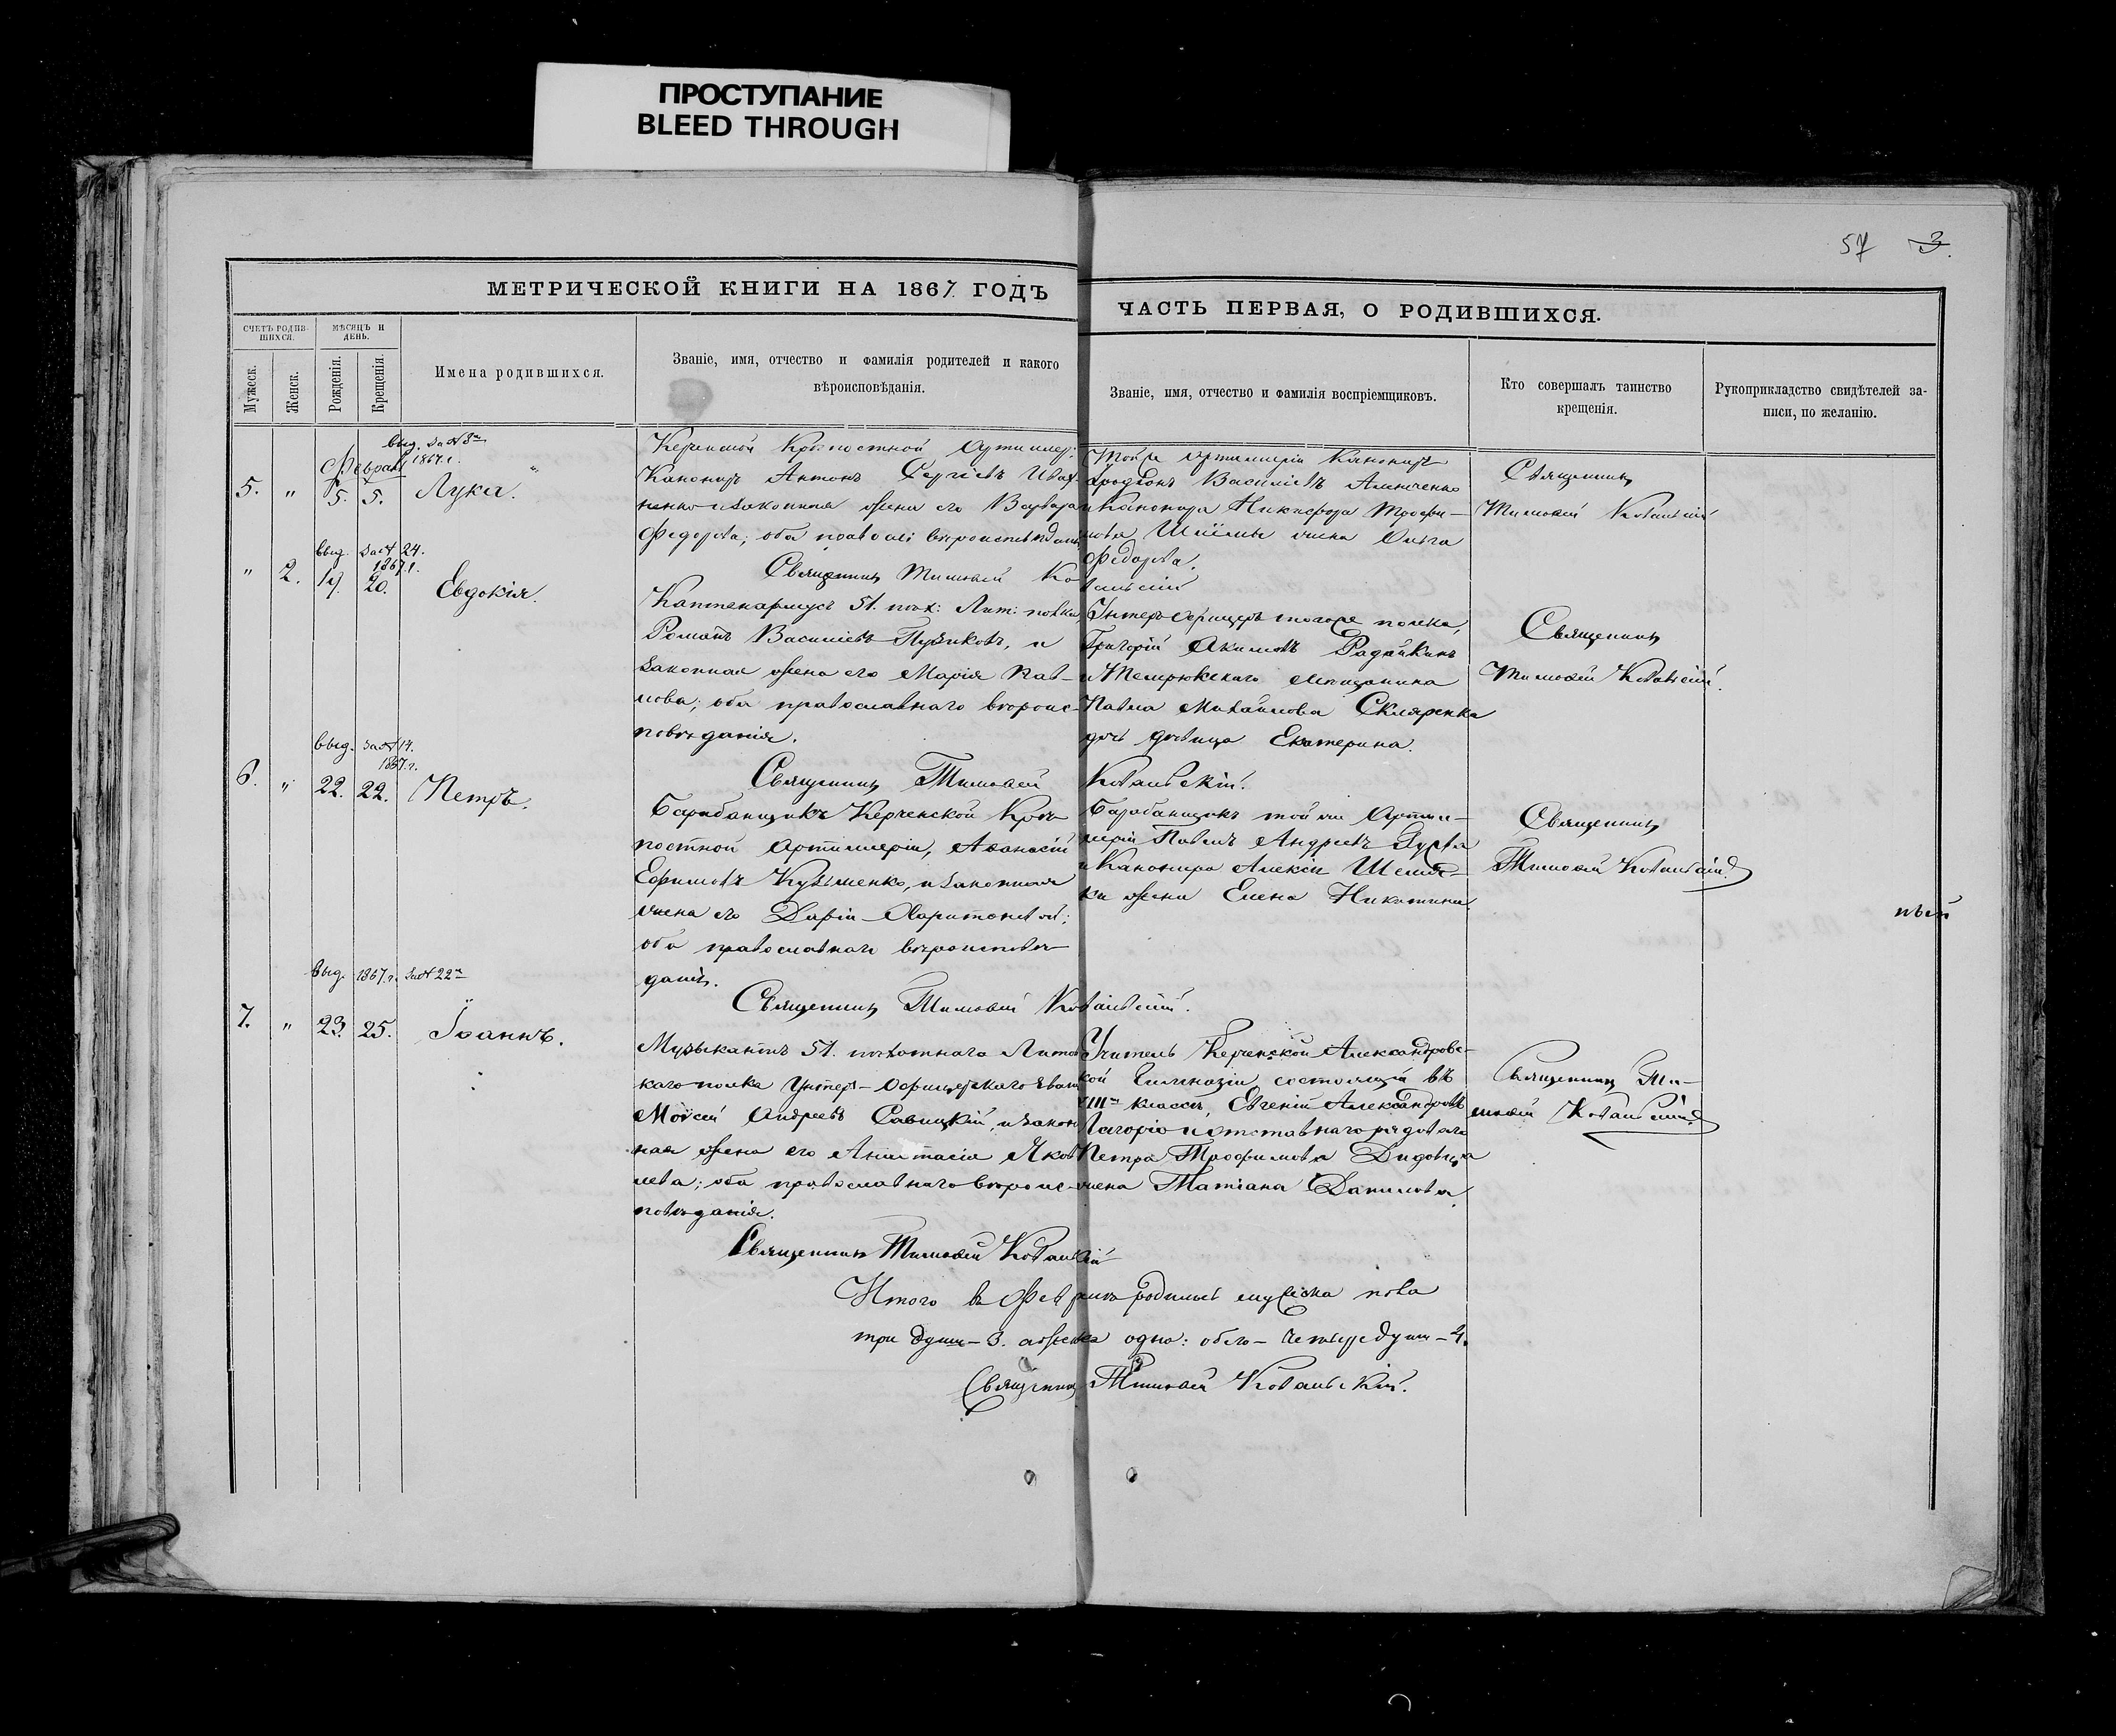 ПРОСТУПАНИЕ
BLEED THROUGH
57 3.
МЕТРИЧЕСКОЙ КНИГИ НА 1867 ГОДЪ
ЧАСТЬ ПЕРВАЯ, О РОДИВШИХСЯ.
СЧЕТЪ РОДИВ-
ШИХСЯ.
МѢСЯЦЪ И
ДЕНЬ.
Мужеск.
Женск.
Рожденія.
Крещенія.
Имена родившихся.
Званіе, имя, отчество и фамилія родителей и какого
вѣроисповѣданія.
Званіе, имя, отчество и фамилія воспріемщиковъ.
Кто совершалъ таинство
крещенія.
Рукоприкладство свидѣтелей за-
писи, по желанію.
выд. за № 8
1867 г.
Февраль
5. " 5. 5. Лука.
Керченской Крѣпостной Артиллер:
Канониръ Антонъ Сергіевъ
законная жена его Варвара
Федорова; оба
Священникъ Тимоѳей Ковальскій
той же Артиллеріи Канониръ
Родіонъ Василіевъ
и Канонира Никифора Трофи-
мова жена Ольга
Федорова.
Священникъ
Тимоѳей Ковальскій
выд. за № 24.
1867 г.
" 2. 17. 20. Евдокія.
Каптенармусъ 51. пѣх: Лит: полка
Романъ Василіевъ Пузиковъ, и
законная жена его Марія Пав-
лова; оба православнаго вѣроис-
повѣданія.
Священникъ Тимоѳей Ковальскій.
Унтеръ-офицеръ тогоже полка,
Григорій Акимовъ Радайкинъ
и Темрюкскаго мѣщанина
Павла Михайлова Скляренка
дочь дѣвица Екатерина.
Священникъ
Тимоѳей Ковальскій.
выд. за № 14.
1867 г.
6. " 22. 22. Петръ.
Барабанщикъ Керченской Крѣ-
постной Артиллеріи, Аѳанасій
Ефимовъ Кузьменко, и законная
жена его Дарія Харитонова;
оба православнаго вѣроисповѣ-
данія.
Священникъ Тимоѳей Ковальскій.
Барабанщикъ той же Артил-
леріи Павелъ Андреевъ
и Канонира Алексѣя
жена Елена Никитина.
Священникъ
Тимоѳей Ковальскій.
выд. 1867 г. за № 22
7. " 23. 25. Іоаннъ.
Музыкантъ 51. пѣхотнаго Литов
каго полка Унтеръ-Офицерскаго званія
Моѵсей Андреевъ Савицкій, и закон
ная жена его Анастасія Яков
лева; оба православнаго вѣроис-
повѣданія.
Священникъ Тимоѳей Ковальскій
Учитель Керченской Александровс-
кой Гимназіи состоящій въ
классѣ, Евгеній Александровъ
Лагоріо и отставнаго рядоваго
Петра Трофимова
жена Татіана Данилова.
Священникъ Ти-
моѳей Ковальскій
Итого въ Февралѣ родилось мужеска пола
три души - 3. а женска одна: обоего - четыре души - 4.
Священникъ Тимоѳей Ковальскій.